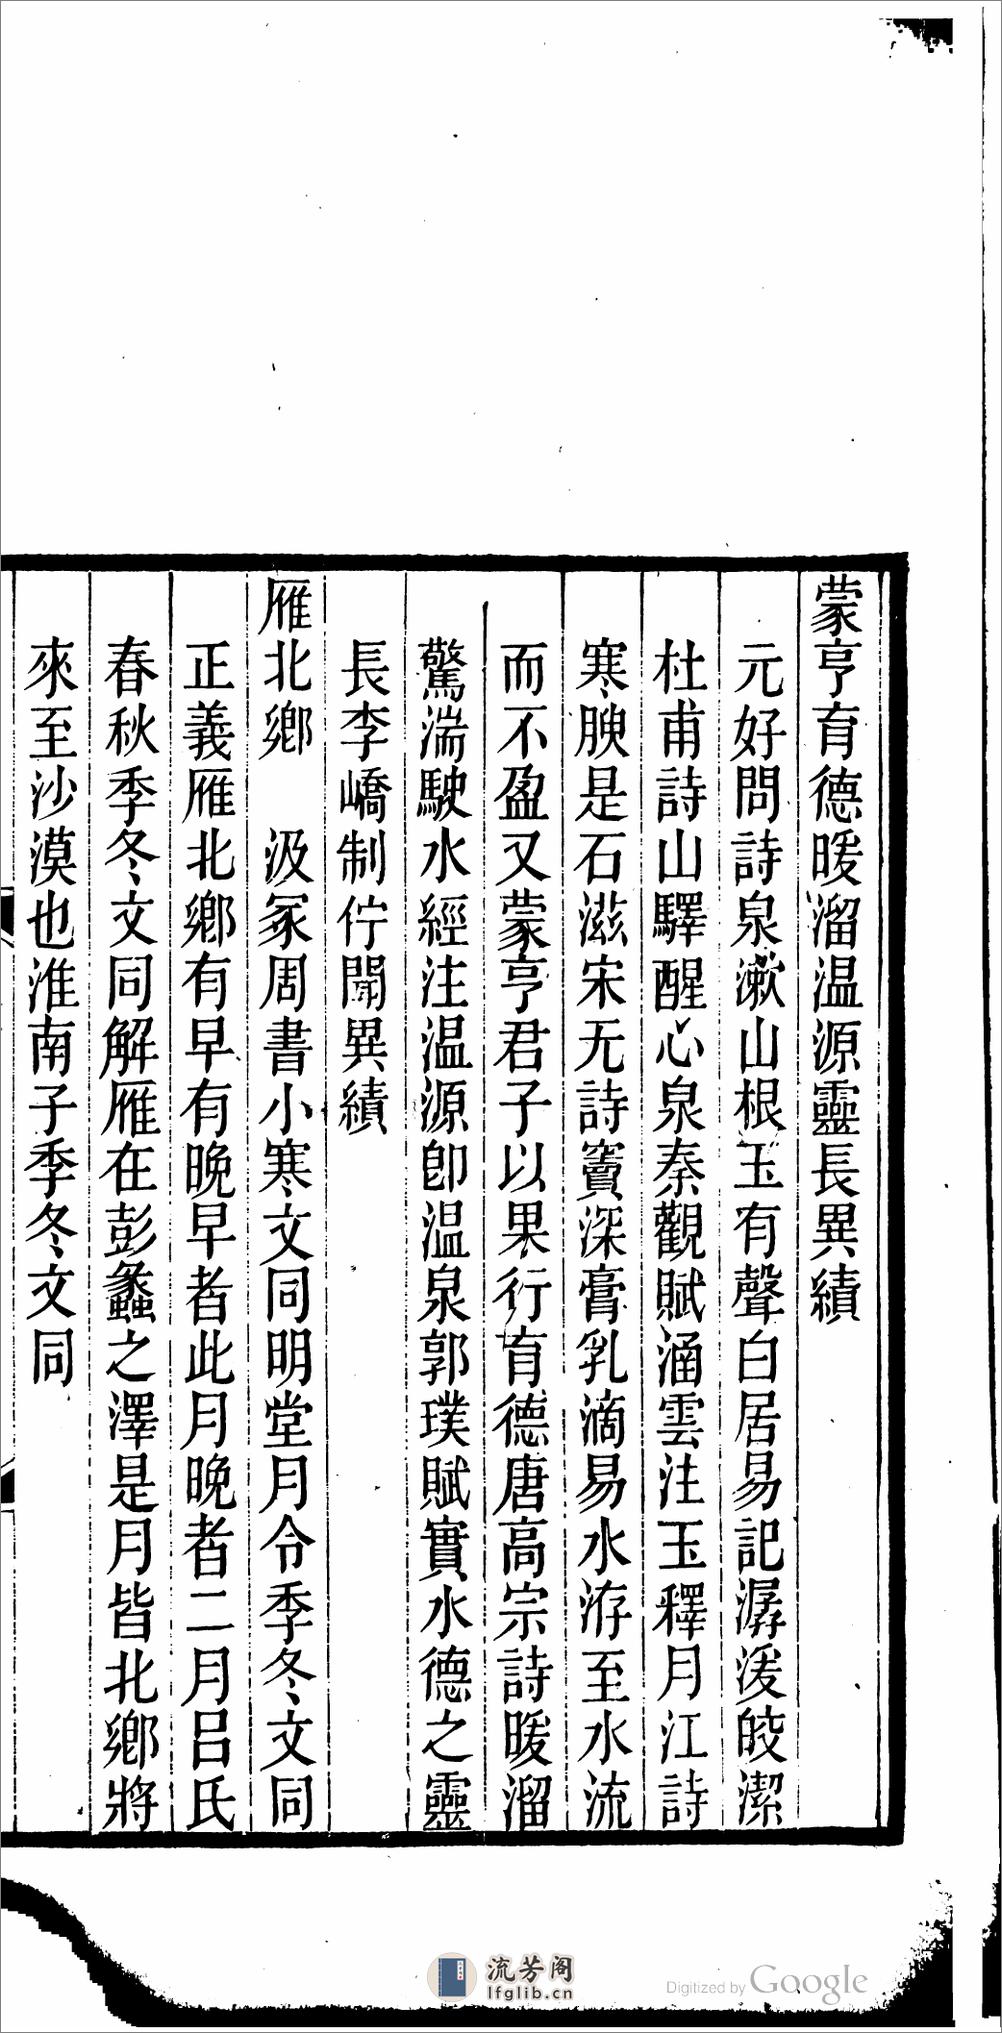 蒙亨育德暖溜温源靈長異績
元好問詩泉漱山根玉有聲白居易記潺湲皎潔
杜甫詩山驛醒心泉秦觀賦涵雲注玉釋月江詩
寒腴是石滋宋无詩竇深膏乳滴易水洊至水流
而不盈又蒙亨君子以果行育德唐高宗詩暖溜
驚湍駛水經注温源卽温泉郭璞賦實水德之靈
長李嶠制佇聞異績
雁北鄉　汲冢周書小寒文同明堂月令季冬文同
正義雁北鄉有早有晚早者此月晚者二月呂氏
春秋季冬文同解雁在彭蠡之澤是月皆北鄉將
來至沙漠也淮南子季冬文同
流芳阁
lfglib.cn
Digitized by Google